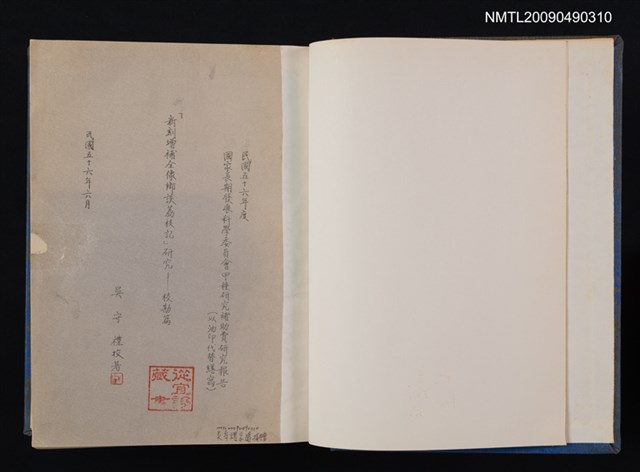 NMTL20090490310
民國五十六年度
國家長期發展科學委員會甲種研究補助費研究報告
(以油印代替繕寫)
「新刻增補全像鄉談荔枝記」研究——校勘篇
吳守禮校著
民國五十六年六月
從宜
藏書